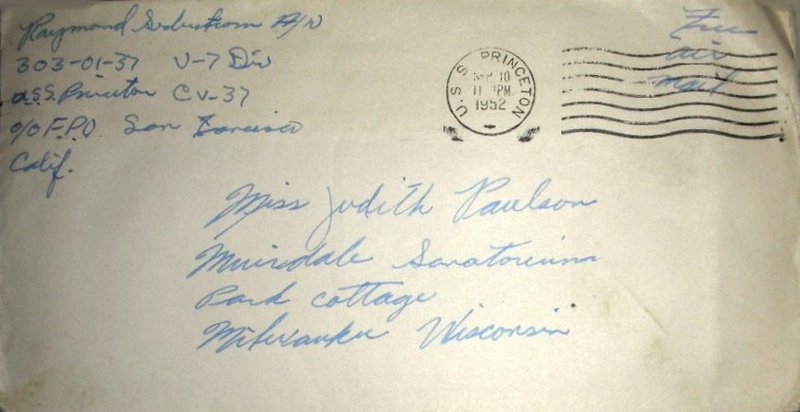 Raymond A/N
303-01-37 V-7 Div
U.S.S. Princeton CV-37
c/o F.P.O. San Francisco
Calif.
U.S.S. PRINCETON
SEP 10
PM
1952
Free
air
mail
Miss Judith Paulson
Muirdale Sanatorium
Park Cottage
Milwaukee Wisconsin